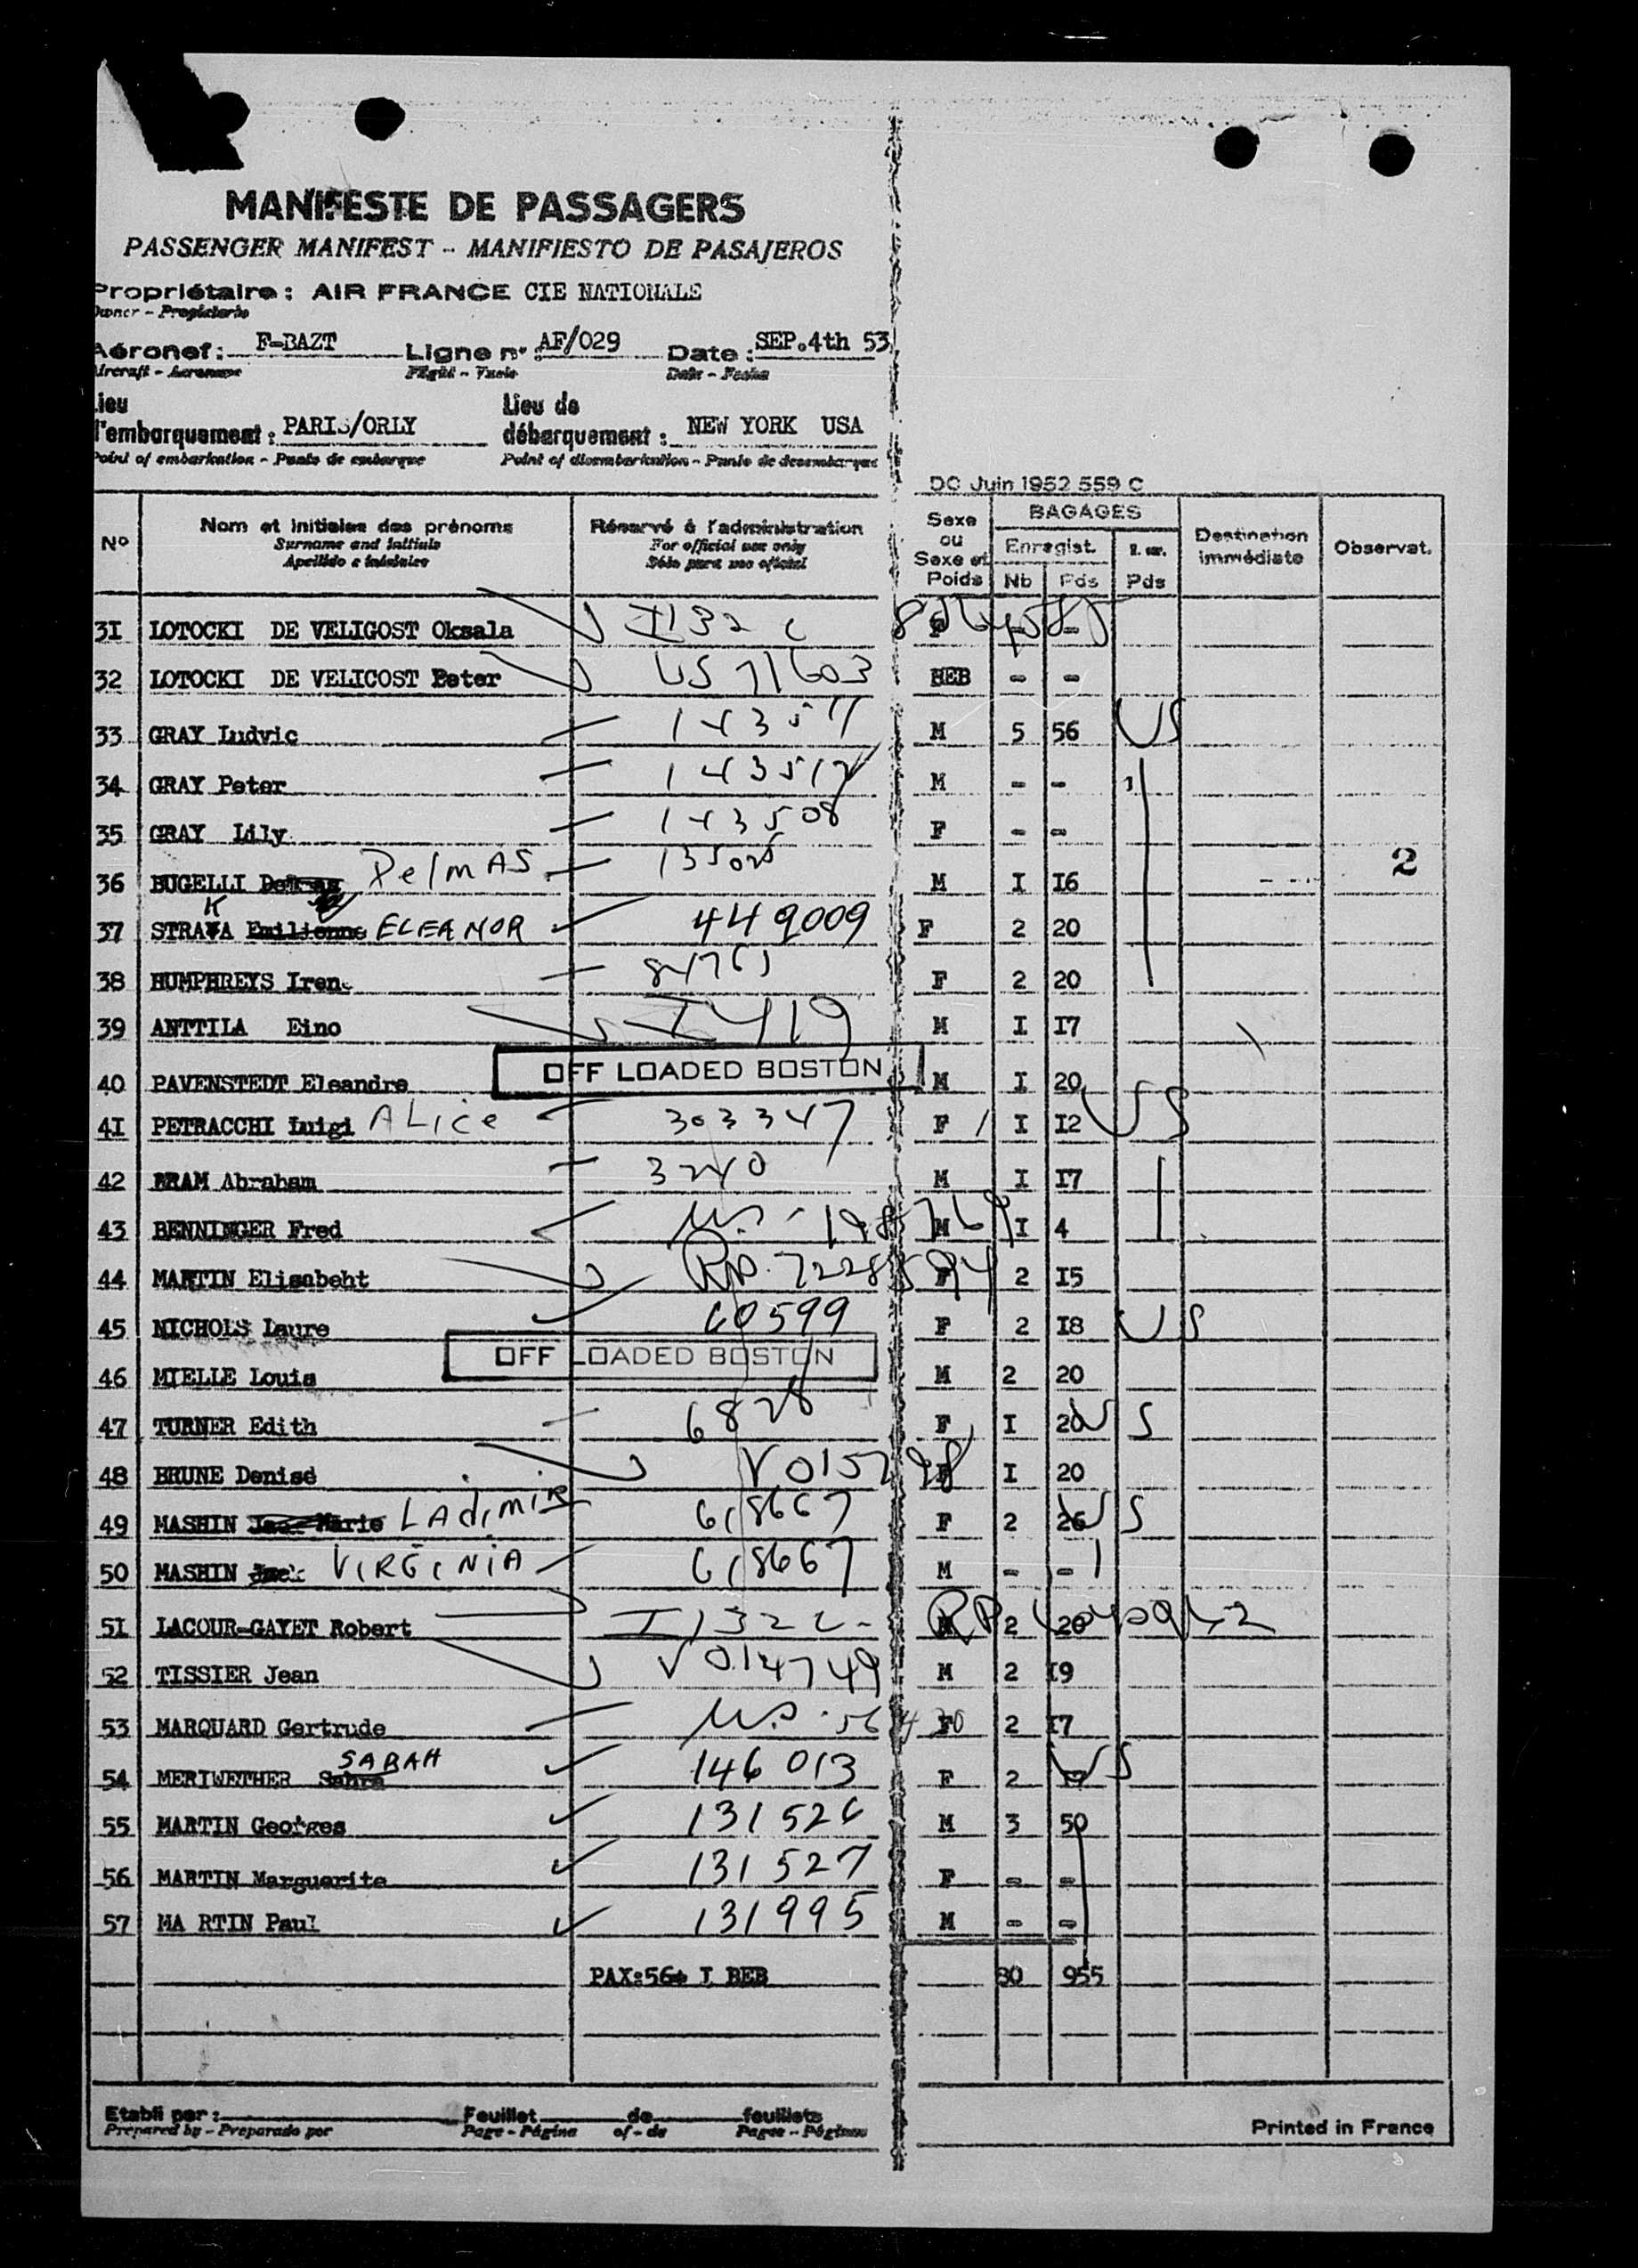 MANIFESTE DE PASSAGERS
PASSENGER MANIFEST - MANIFIESTO DE PASAJEROS
Propriétaire : AIR FRANCE CIE NATIONALE
Owner - Propietario
Aéronef : F-BAZT Ligne n° AF/029 Date : SEP.4th 53
Aircraft - Aeronave Flight - Vuelo Date - Fecha
Lieu d'embarquement : PARIS/ORLY Lieu de débarquement : NEW YORK USA
Point of embarkation - Punto de embarque Point of disembarkation - Punto de desembarque
DC Juin 1952 559 C
N° Nom et initiales des prénoms Réservé à l'administration Sexe ou Sexe et Poids BAGAGES Destination immédiate Observat.
Surname and initials For official use only Enregist.
Apellido e iniciales Sólo para uso oficial Nb Pds Pds
31 LOTOCKI DE VELIGOST Oksala I 132 C F - -
32 LOTOCKI DE VELICOST Peter US 71603 BEB - -
33 GRAY Ludvic 143511 M 5 56 US
34 GRAY Peter 143512 M - -
35 GRAY Lily 143508 F - -
36 BUGELLI DelmAS M I I6 2
37 STRAKA ELEANOR 449009 F 2 20
38 HUMPHREYS Irene F 2 20
39 ANTTILA Eino I 419 M I I7
40 PAVENSTEDT Eleandre OFF LOADED BOSTON M I 20
41 PETRACCHI Luigi ALice 303347 F I I2 US
42 BRAM Abraham 3240 M I I7
43 BENNINGER Fred M I 4
44 MARTIN Elisabeht F 2 I5
45 NICHOLS Laure 60599 F 2 I8 US
46 MIELLE Louis OFF LOADED BOSTON M 2 20
47 TURNER Edith 6828 F I 20 US
48 BRUNE Denise F I 20
49 MASHIN LAdimiR 618667 F 2 26 US
50 MASHIN Jack VIRGINIA 618667 M - -
51 LACOUR-GAYET Robert I 132 C M 2 20
52 TISSIER Jean V 014749 M 2 I9
53 MARQUARD Gertrude F 2 I7
54 MERIWETHER Sahra SARAH 146013 F 2 US
55 MARTIN Georges 131526 M 3 50
56 MARTIN Marguerite 131527 F - -
57 MA RTIN Paul 131995 M - -
PAX:56+ I BEB 80 955
Etabli par : Feuillet de feuillets
Prepared by - Preparado por Page - Página of - de Pages - Páginas
Printed in France